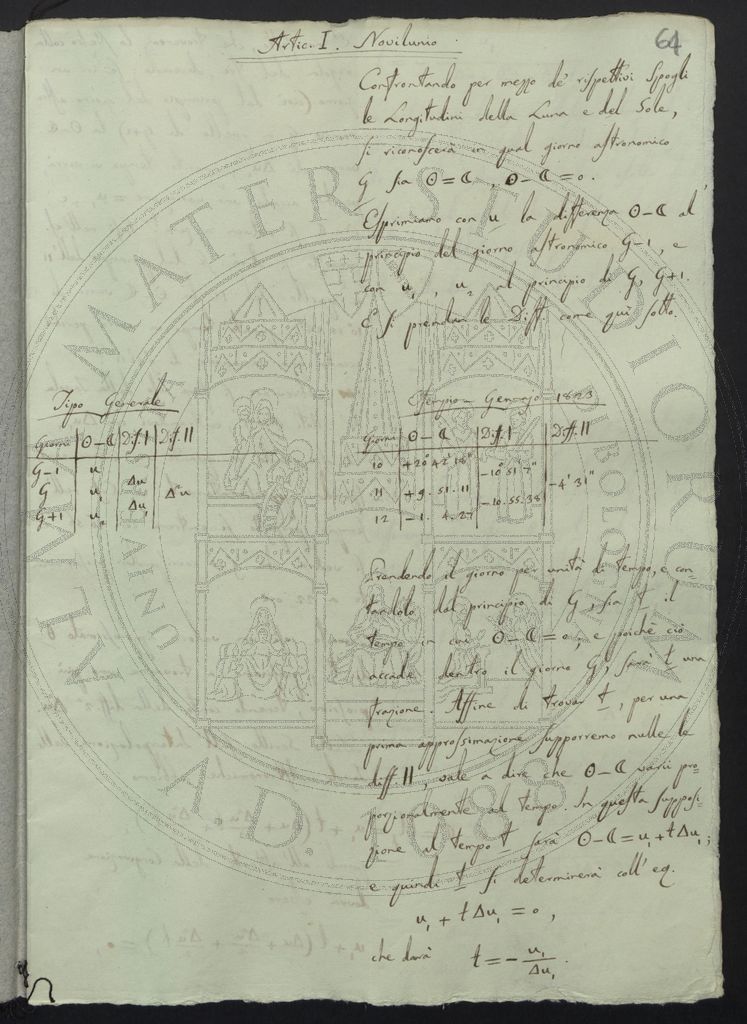 64
Artic. I. Novilunio
Confrontando per mezzo de' rispettivi Spogli
le Longitudini della Luna e del Sole,
si riconoscerà in qual giorno astronomico
G sia ʘ=☾, ʘ-☾=0.
Esprimiamo con u la differenza ʘ-☾ al
principio del giorno astronomico G-1, e
con u₁, u₂ al principio di G, G+1.
E si prendan le Diff come qui sotto.
Tipo Generale
Giorni | ʘ-☾ | Dif. I | Dif. II
G-1 u
Δu
G u₁ Δ²u
Δu₁
G+1 u₂
Gennajo 1823
Giorni | ʘ-☾ | Diff. I | Diff. II
10 +20° 42' 18"
-10° 51' 7"
11 +9. 51. 11 -4' 31"
-10. 55. 38
12 -1. 4. 27
Prendendo il giorno per unità di tempo, e con-
tandolo dal principio di G, sia t il
tempo in cui ʘ-☾=0; e poichè ciò
accade dentro il giorno G, sarà t una
frazione. Affine di trovar t, per una
prima approssimazione supporremo nulle le
diff II, vale a dire che ʘ-☾ varii pro-
porzionalmente al tempo. In questa supposi-
zione al tempo t sarà ʘ-☾=u₁+tΔu₁;
e quindi t si determinerà coll' eq.
u₁+tΔu₁=0,
che darà t=-u₁/Δu₁.
ALMA MATER STUDIORUM
UNIVERSITÀ DI BOLOGNA
A.D. 1088